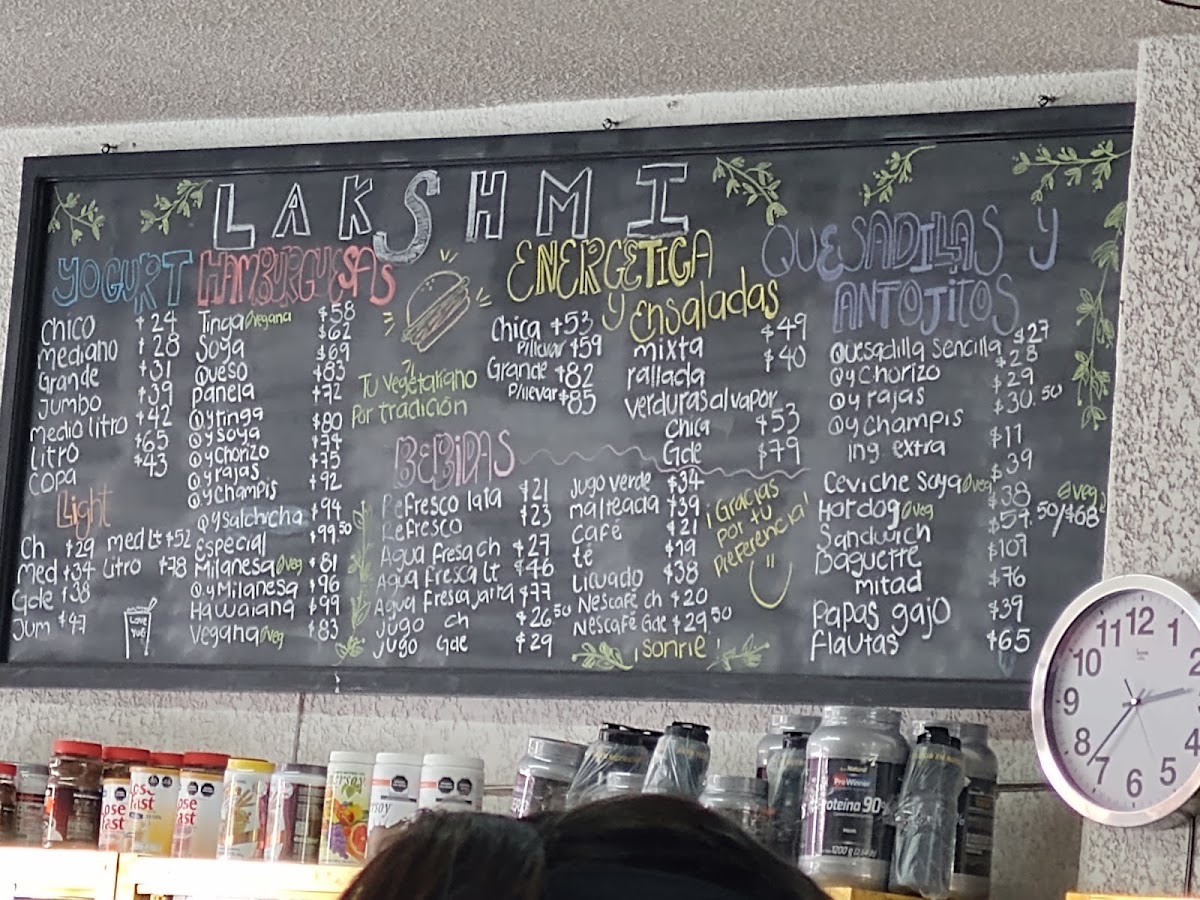 LAKSHMI
YOGURT
Chico $24
Mediano $28
Grande $31
Jumbo $39
Medio litro $42
Litro $65
Copa $43
Light
Ch $29 med Lt $52
Med $34 Litro $78
Gde $38
Jum $47
LOVE
HAMBURGUESAS
Tinga vegana $58
Soya $62
Queso $69
Panela $83
Q y tinga $72
Q y soya $80
Q y chorizo $74
Q y rajas $75
Q y champis $92
Q y salchicha $94
Especial $99.50
Milanesa veg $81
Q y Milanesa $96
Hawaiana $99
Vegana veg $83
Tu vegetariano
Por tradición
ENERGETICA
y Ensaladas
Chica $53
P/llevar $59
Grande $82
P/llevar $85
mixta $49
rallada $40
verduras al vapor
Chica $53
Gde $79
BEBIDAS
Refresco lata $21
Refresco $23
Agua fresa ch $27
Agua fresca Lt $46
Agua fresca jarra $77
Jugo ch $26.50
Jugo Gde $29
Jugo verde $34
malteada $39
Café $21
té $19
Licuado $38
Nescafé ch $20
Nescafé Gde $29.50
¡Gracias
por tu
preferencia!
¡sonríe!
QUESADILLAS Y
ANTOJITOS
Quesadilla sencilla $27
Q y Chorizo $28
Q y rajas $29
Q y champis $30.50
ing extra $11
Ceviche Soya veg $39
Hordog veg $38
Sandwich $59.50/$68 veg
Baguette $107
mitad $76
Papas gajo $39
Flautas $65
12
1
2
4
5
6
7
8
9
10
11
ProWinner
Proteína 90%
1200 g